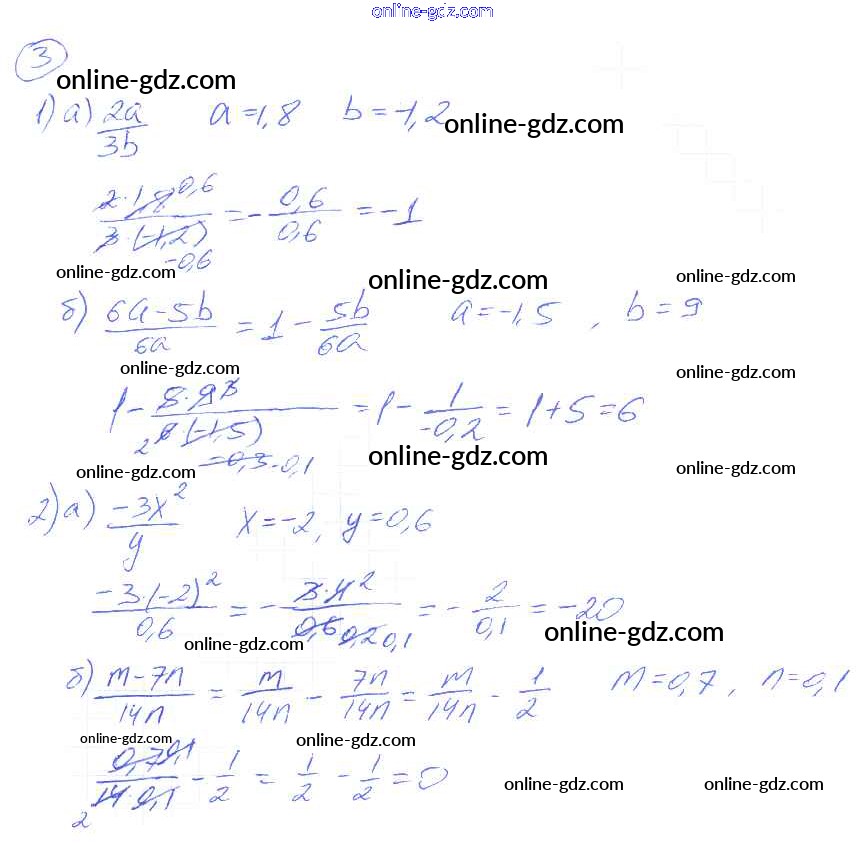 online-gdz.com
3
online-gdz.com
1) а) 2a/3b a = 1,8 b = -1,2
online-gdz.com
2·1,8 0,6 / 3·(-1,2) -0,6 = - 0,6/0,6 = -1
online-gdz.com online-gdz.com online-gdz.com
б) 6a-5b/6a = 1 - 5b/6a a = -1,5 , b = 9
online-gdz.com online-gdz.com
1 - 5·9 3 / 2 6·(-1,5) -0,5 -0,1 = 1 - 1/-0,2 = 1+5 = 6
online-gdz.com online-gdz.com online-gdz.com
2) а) -3x²/y x = -2, y = 0,6
-3·(-2)²/0,6 = - 3·4 2 / 0,6 0,2 0,1 = - 2/0,1 = -20
online-gdz.com online-gdz.com
б) m-7n/14n = m/14n - 7n/14n = m/14n - 1/2 m = 0,7 , n = 0,1
online-gdz.com online-gdz.com
0,7 0,1 / 2 14·0,1 - 1/2 = 1/2 - 1/2 = 0
online-gdz.com online-gdz.com